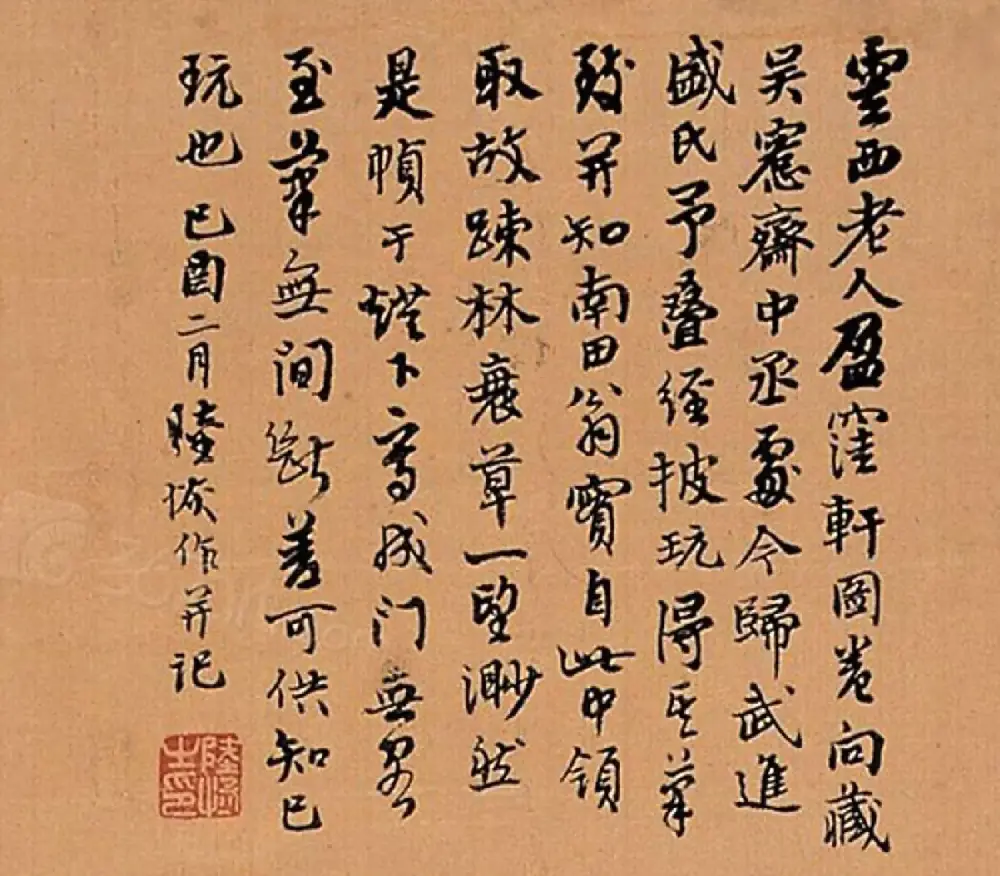 雲西老人盈窪軒圖卷向藏
吴愙齋中丞處今歸武進
盛氏予叠經披玩得其筆
致并知南田翁實自此中領
取故踈林衰草一望渺然
是幀于燈下寫成门無客
至筆無間斷差可供知己
玩也己酉二月陸恢作并記
陸恢之印